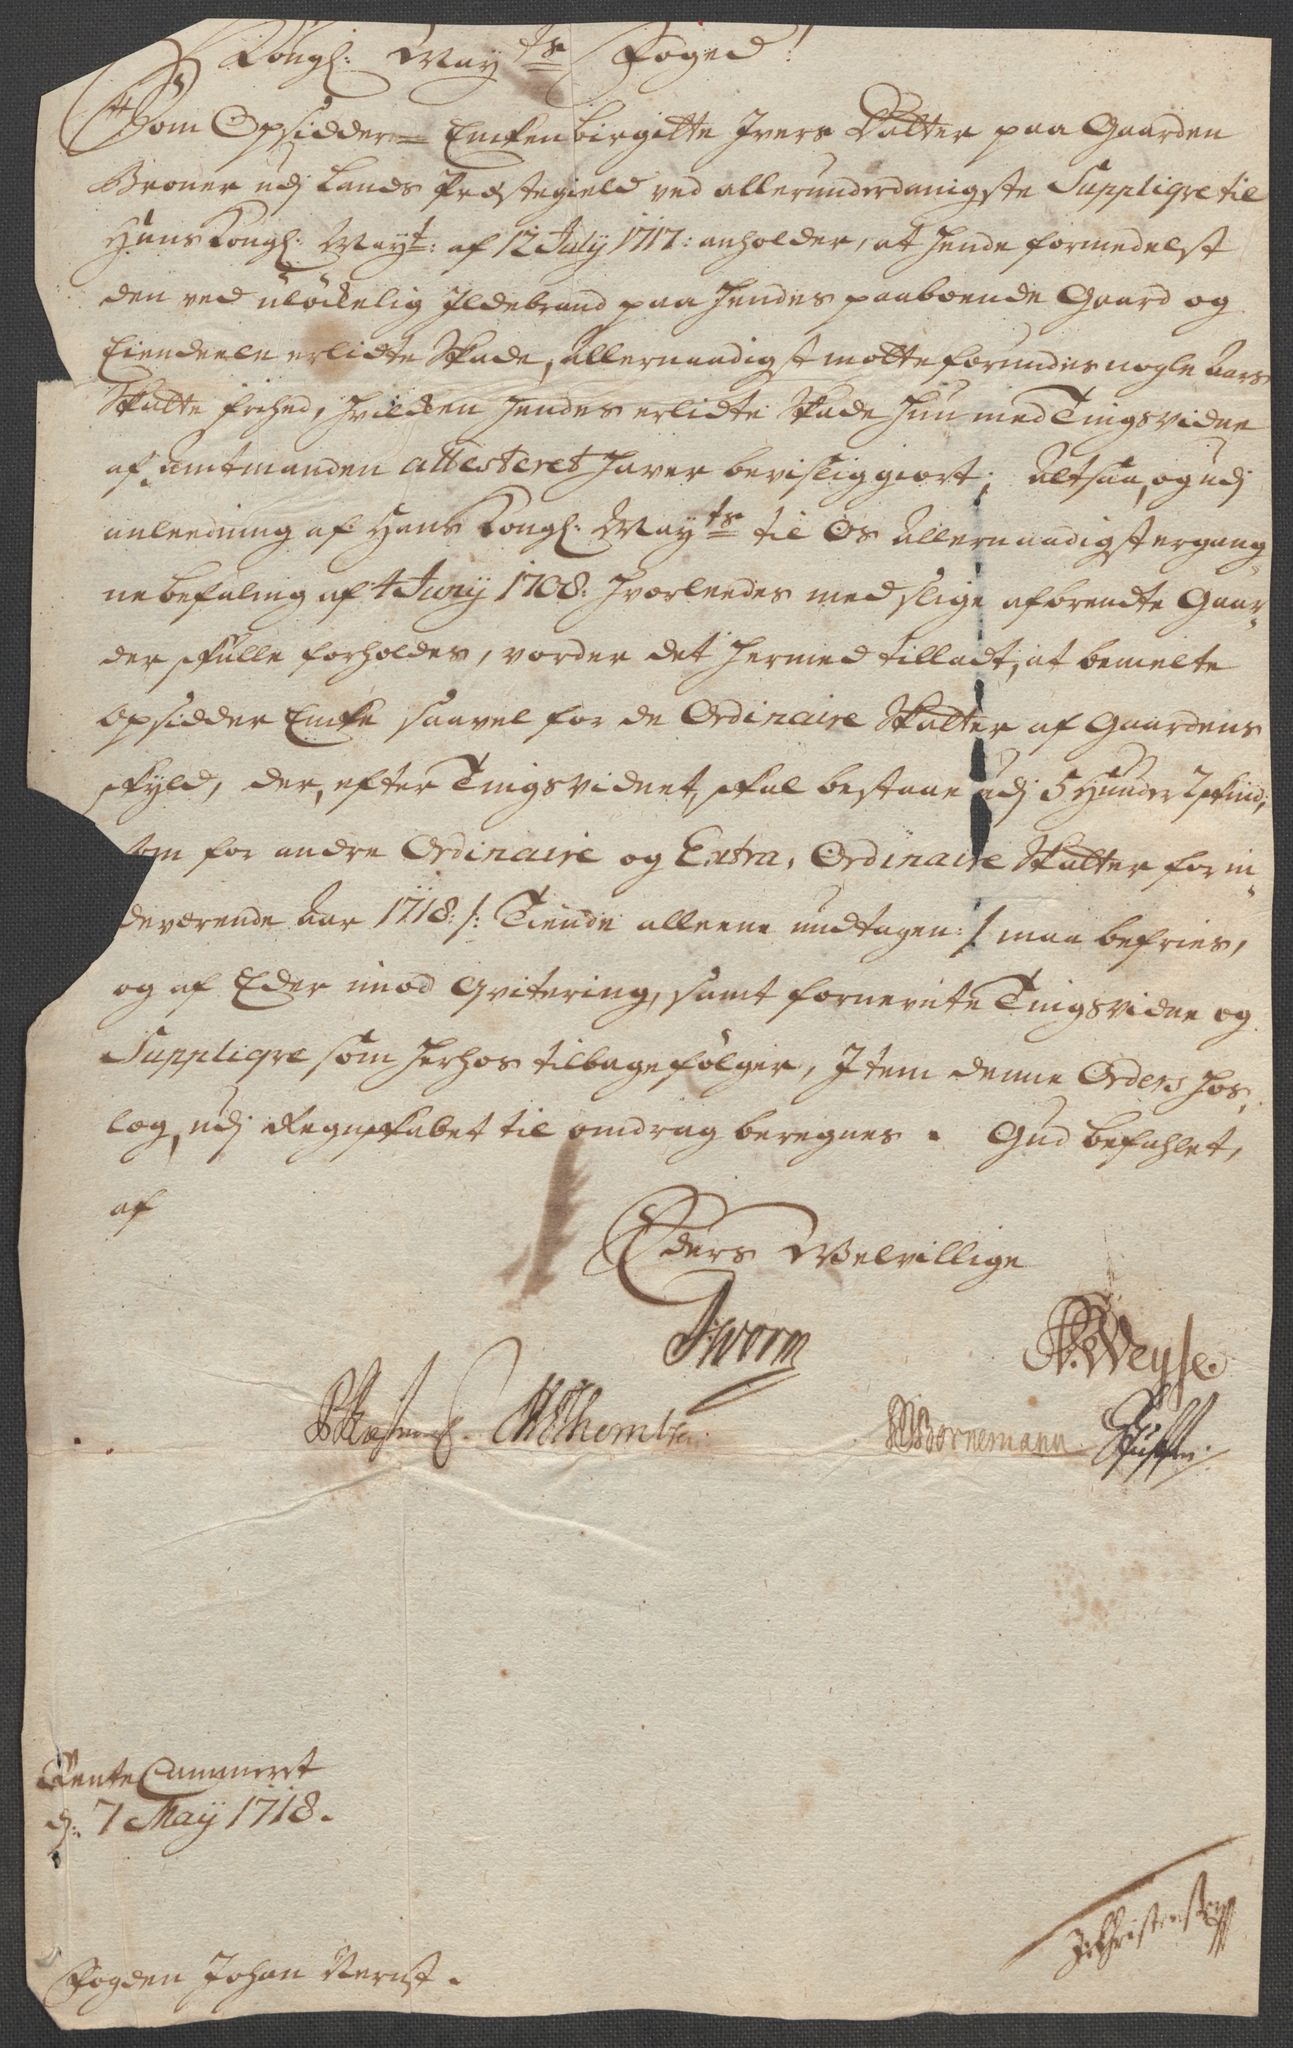 Kongl: May.ts Foged!
Som Opsidder= Encken Birgitte Ivers Datter paa Gaarden
Broner udj Lands Præstegield ved allerunderdanigste Suppliqve til
Hans Kongl: Mayt: af 12 July 1717: anholder, at hende formedelst
den ved ulöckelig Ildebrand paa hendes paaboende Gaard og
Eiendeele erlidte Skade, allernaadigst motte forundes nogle Aars
Skatte frihed, hvilcken hendes erlidte Skade hun med Tingsvidne
af Amtmanden attesteret haver bevislig giort; Altsaa, og udj
anleedning af Hans Kongl: May.ts til Os Allernaadigst ergang-
ne befaling af 4 Juny 1708: hvorleedes med slige afbrendte Gaar-
der skulle forholdes, vorder det hermed tilladt, at bemelte
Opsidder Encke saavel for de Ordinaire Skatter af Gaardens
skyld, der, efter Tingsvidnet, skal bestaae udj 5 Hunder 2 skind,
som for andre Ordinaire og Extra, Ordinaire Skatter for in-
deværende Aar 1718: /: Tiende alleene undtagen :/ maa befries,
og af Eder imod Qvitering, samt fornevnte Tingsvidne og
Suppliqve som herhos tilbagefölger, Item denne Orders hos-
læg, udj Regnskabet til omdrag beregnes. Gud befahlet,
af
Eders Welvillige
JWorm
A: Weyse.
Bornemann
Rente Cammeret
d: 7 May 1718.
Fogden Johan Nernst.